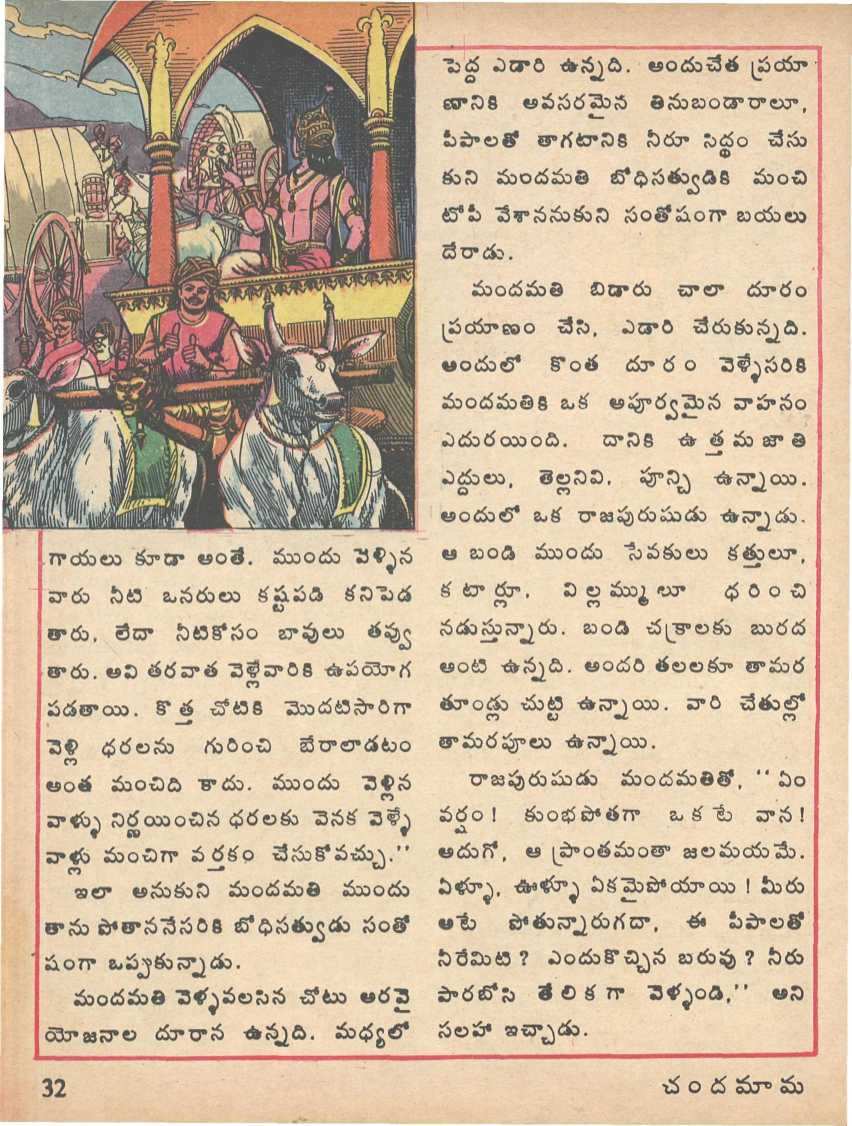 గాయలు కూడా అంతే. ముందు వెళ్ళిన
వారు నీటి ఒనరులు కష్టపడి కనిపెడ
తారు, లేదా నీటికోసం బావులు తవ్వు
తారు. అవి తరవాత వెళ్లేవారికి ఉపయోగ
పడతాయి. కొత్త చోటికి మొదటిసారిగా
వెళ్లి ధరలను గురించి బేరాలాడటం
అంత మంచిది కాదు. ముందు వెళ్లిన
వాళ్ళు నిర్ణయించిన ధరలకు వెనక వెళ్ళే
వాళ్లు మంచిగా వర్తకం చేసుకోవచ్చు.’’
ఇలా అనుకుని మందమతి ముందు
తాను పోతాననేసరికి బోధిసత్వుడు సంతో
షంగా ఒప్పుకున్నాడు.
మందమతి వెళ్ళవలసిన చోటు అరవై
యోజనాల దూరాన ఉన్నది. మధ్యలో
పెద్ద ఎడారి ఉన్నది. అందుచేత ప్రయా
ణానికి అవసరమైన తినుబండారాలూ,
పీపాలతో తాగటానికి నీరూ సిద్ధం చేసు
కుని మందమతి బోధిసత్వుడికి మంచి
టోపీ వేశాననుకుని సంతోషంగా బయలు
దేరాడు.
మందమతి బిడారు చాలా దూరం
ప్రయాణం చేసి, ఎడారి చేరుకున్నది.
అందులో కొంత దూరం వెళ్ళేసరికి
మందమతికి ఒక అపూర్వమైన వాహనం
ఎదురయింది. దానికి ఉత్తమజాతి
ఎద్దులు, తెల్లనివి, పూన్చి ఉన్నాయి.
అందులో ఒక రాజపురుషుడు ఉన్నాడు.
ఆ బండి ముందు సేవకులు కత్తులూ,
కటార్లూ, విల్లమ్ములూ ధరించి
నడుస్తున్నారు. బండి చక్రాలకు బురద
అంటి ఉన్నది. అందరి తలలకూ తామర
తూండ్లు చుట్టి ఉన్నాయి. వారి చేతుల్లో
తామరపూలు ఉన్నాయి.
రాజపురుషుడు మందమతితో, ‘‘ఏం
వర్షం! కుంభపోతగా ఒకటే వాన!
అదుగో, ఆ ప్రాంతమంతా జలమయమే.
ఏళ్ళూ, ఊళ్ళూ ఏకమైపోయాయి! మీరు
అటే పోతున్నారుగదా, ఈ పీపాలతో
నీరేమిటి? ఎందుకొచ్చిన బరువు? నీరు
పారబోసి తేలికగా వెళ్ళండి,’’ అని
సలహా ఇచ్చాడు.
32
చందమామ